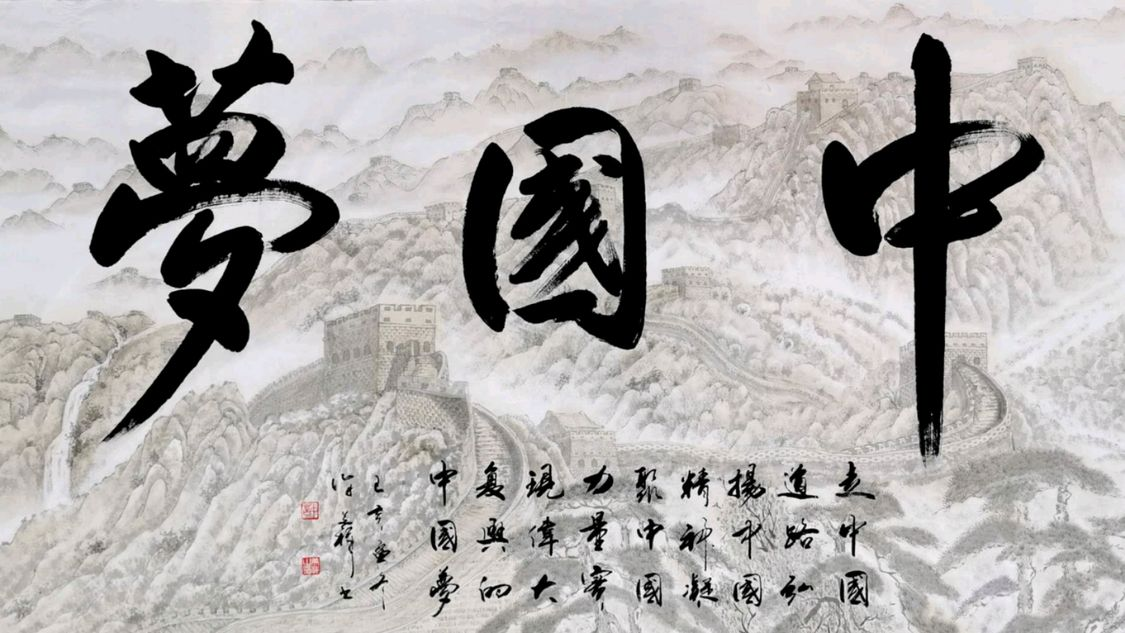 中國夢
走中國
道路弘
揚中國
精神凝
聚中國
力量實
現偉大
复興的
中國夢